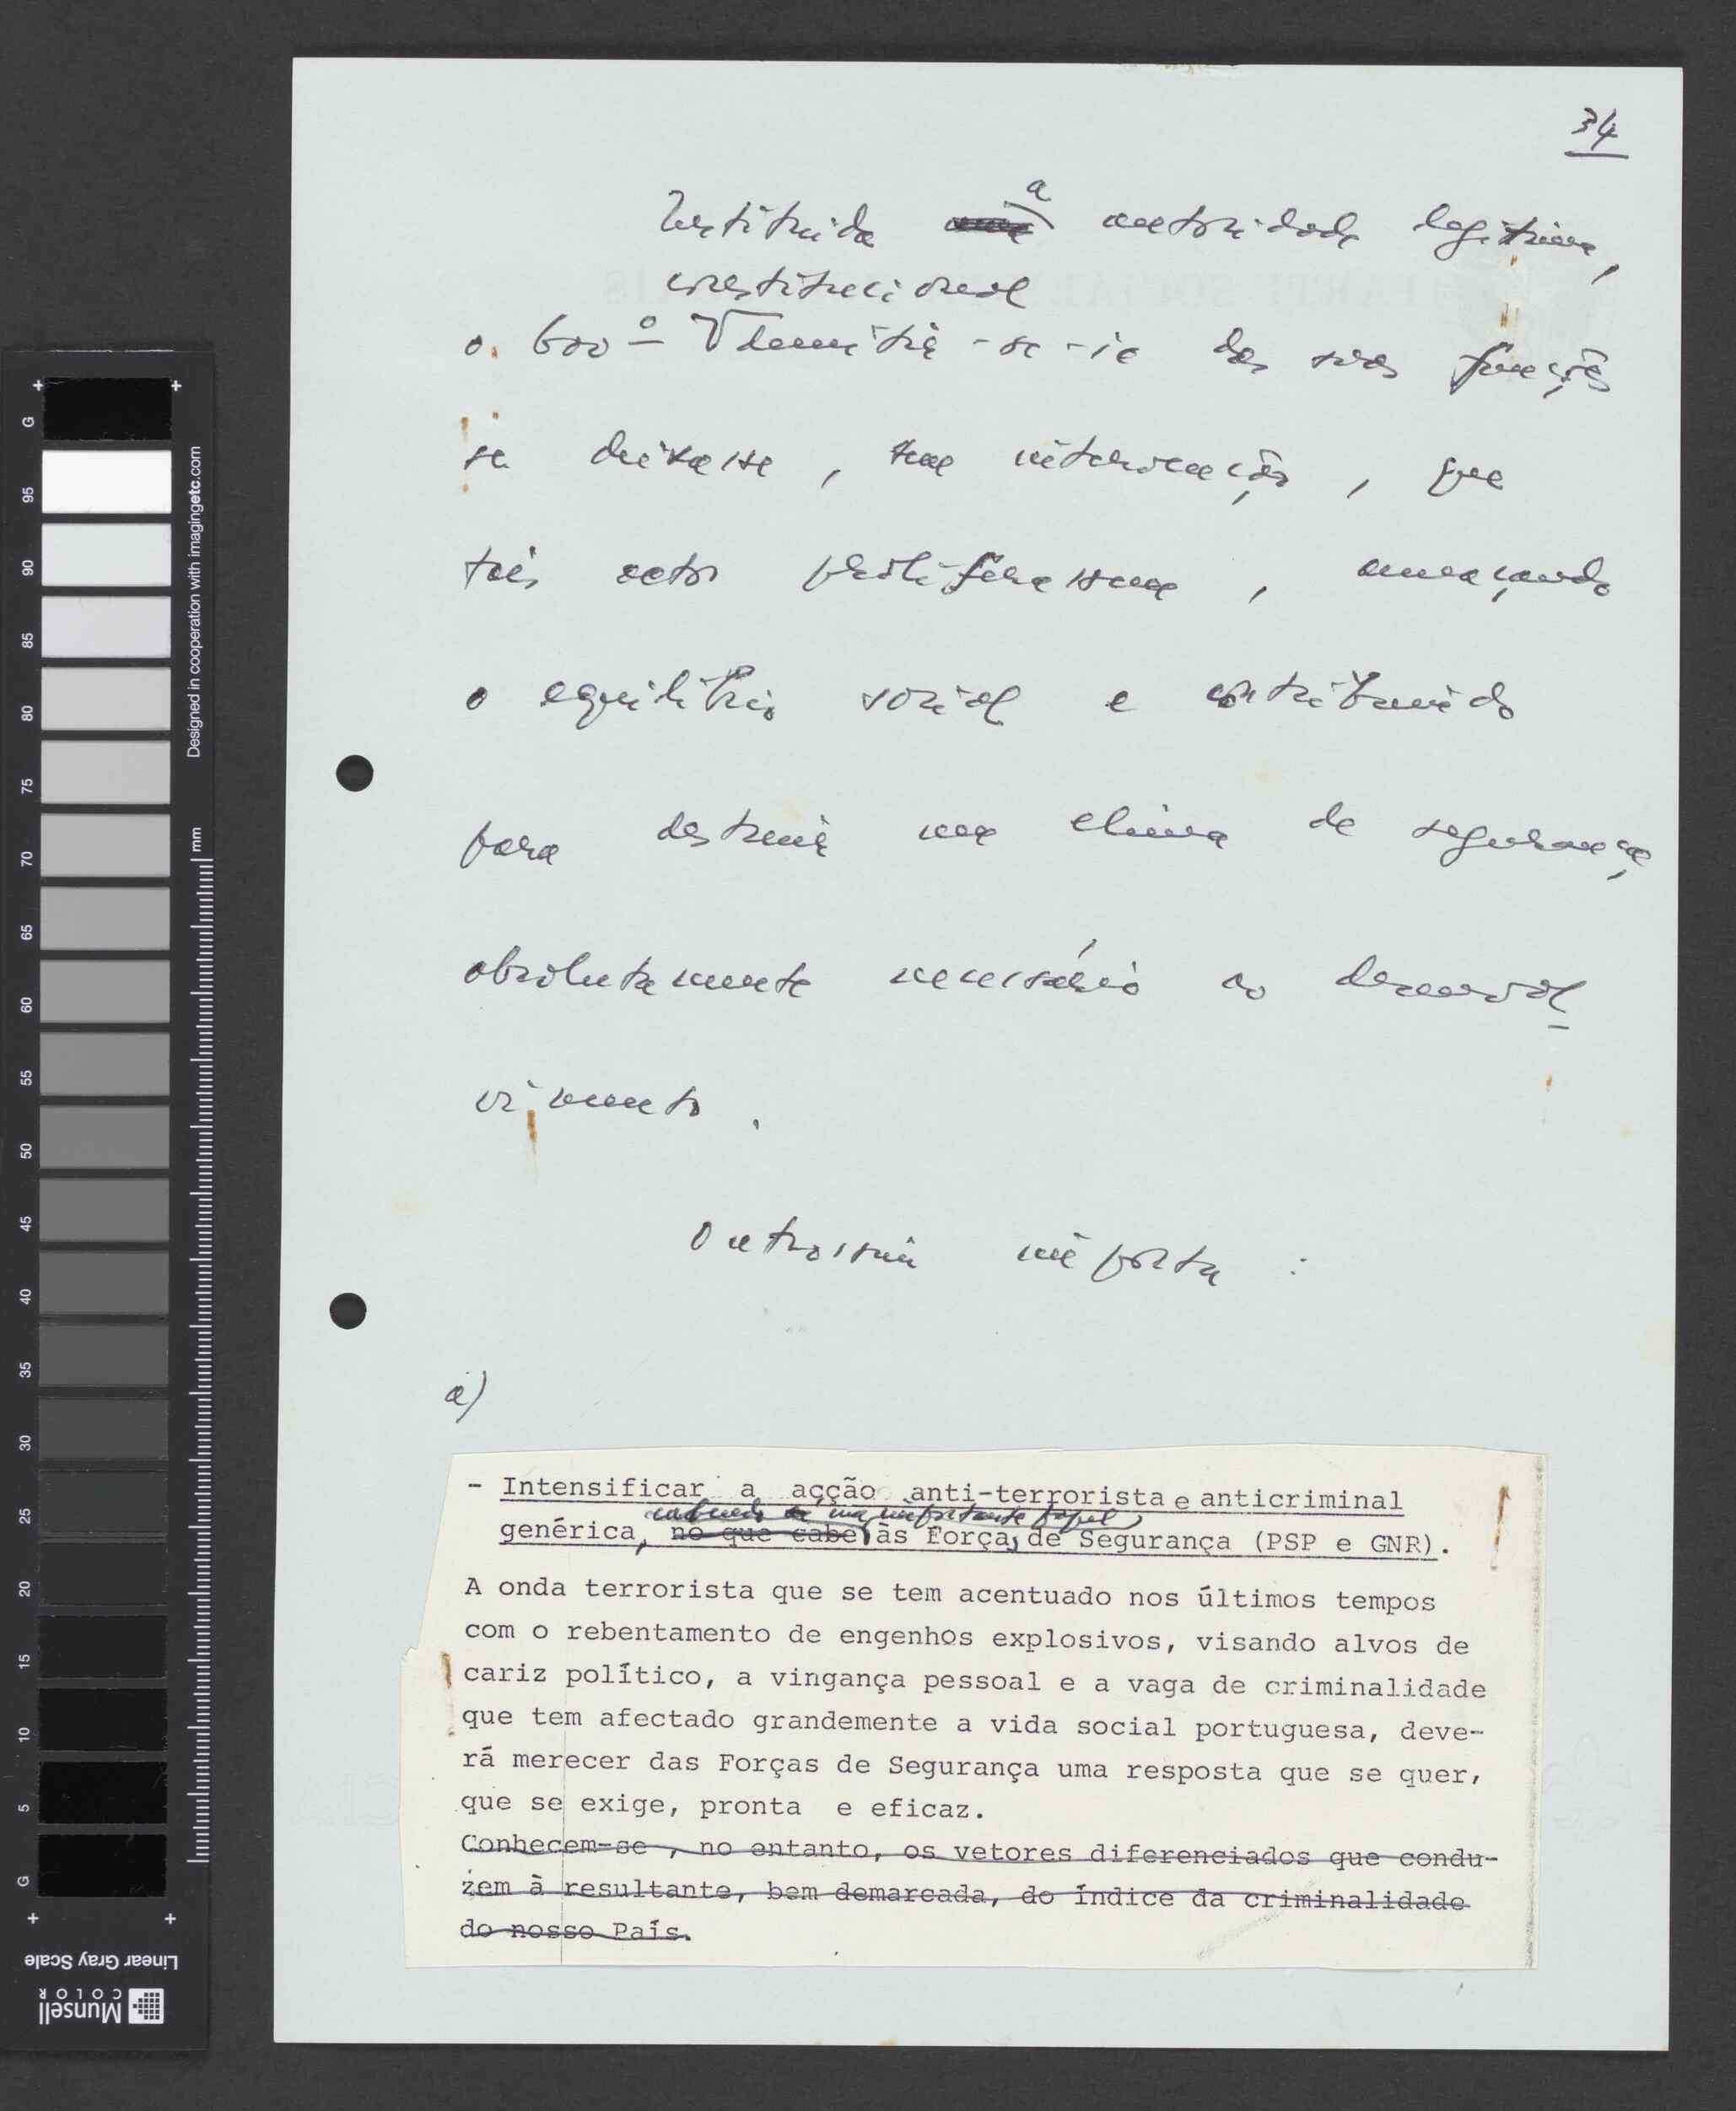 34
Restituída a autoridade legítima,
constitucional
o 6º demitir-se-ia das suas funções
se deixasse, sem intervenção, que
tais actos proliferassem, ameaçando
o equilíbrio social e contribuindo
para destruir um clima de segurança
absolutamente necessário ao desenvol
vimento.
Outrossim importa:
a)
- Intensificar a acção anti-terrorista e anticriminal
cabendo um importante papel
genérica, no que cabe às Forças de Segurança (PSP e GNR).
A onda terrorista que se tem acentuado nos últimos tempos
com o rebentamento de engenhos explosivos, visando alvos de
cariz político, a vingança pessoal e a vaga de criminalidade
que tem afectado grandemente a vida social portuguesa, deve-
rá merecer das Forças de Segurança uma resposta que se quer,
que se exige, pronta e eficaz.
Conhecem-se, no entanto, os vetores diferenciados que condu-
zem à resultante, bem demarcada, do índice da criminalidade
do nosso País.
G
95
90
85
80
75
70
65
60
55
50
45
40
35
30
25
20
15
10
5
G
Designed in cooperation with imagingetc.com
mm
Linear Gray Scale
Munsell
COLOR